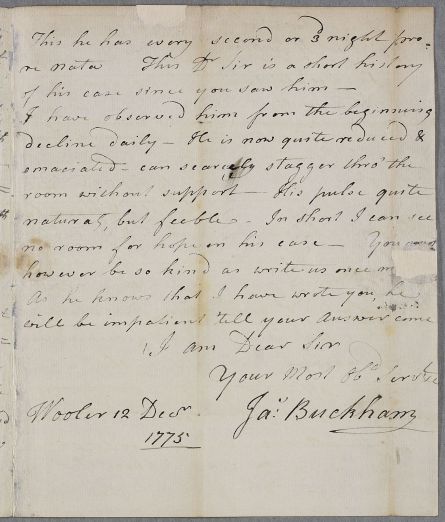 This he has every second or 3d night pro
re nata This Dr Sir is a short history
of his case since you saw him —
I have observed him from the beginning
decline daily — He is now quite reduced &
emaciated - can scarcely stagger thro' the
room without support — His pulse quite
natural, but feeble - In short I can see
no room for hope in his case — You
however be so kind as write us once m
As he knows that I have wrote you, he
will be impatient 'till your Answer come
I am Dear Sir
Your Most Obt Servt
Wooler 12 Decr. Jas. Buckham
1775